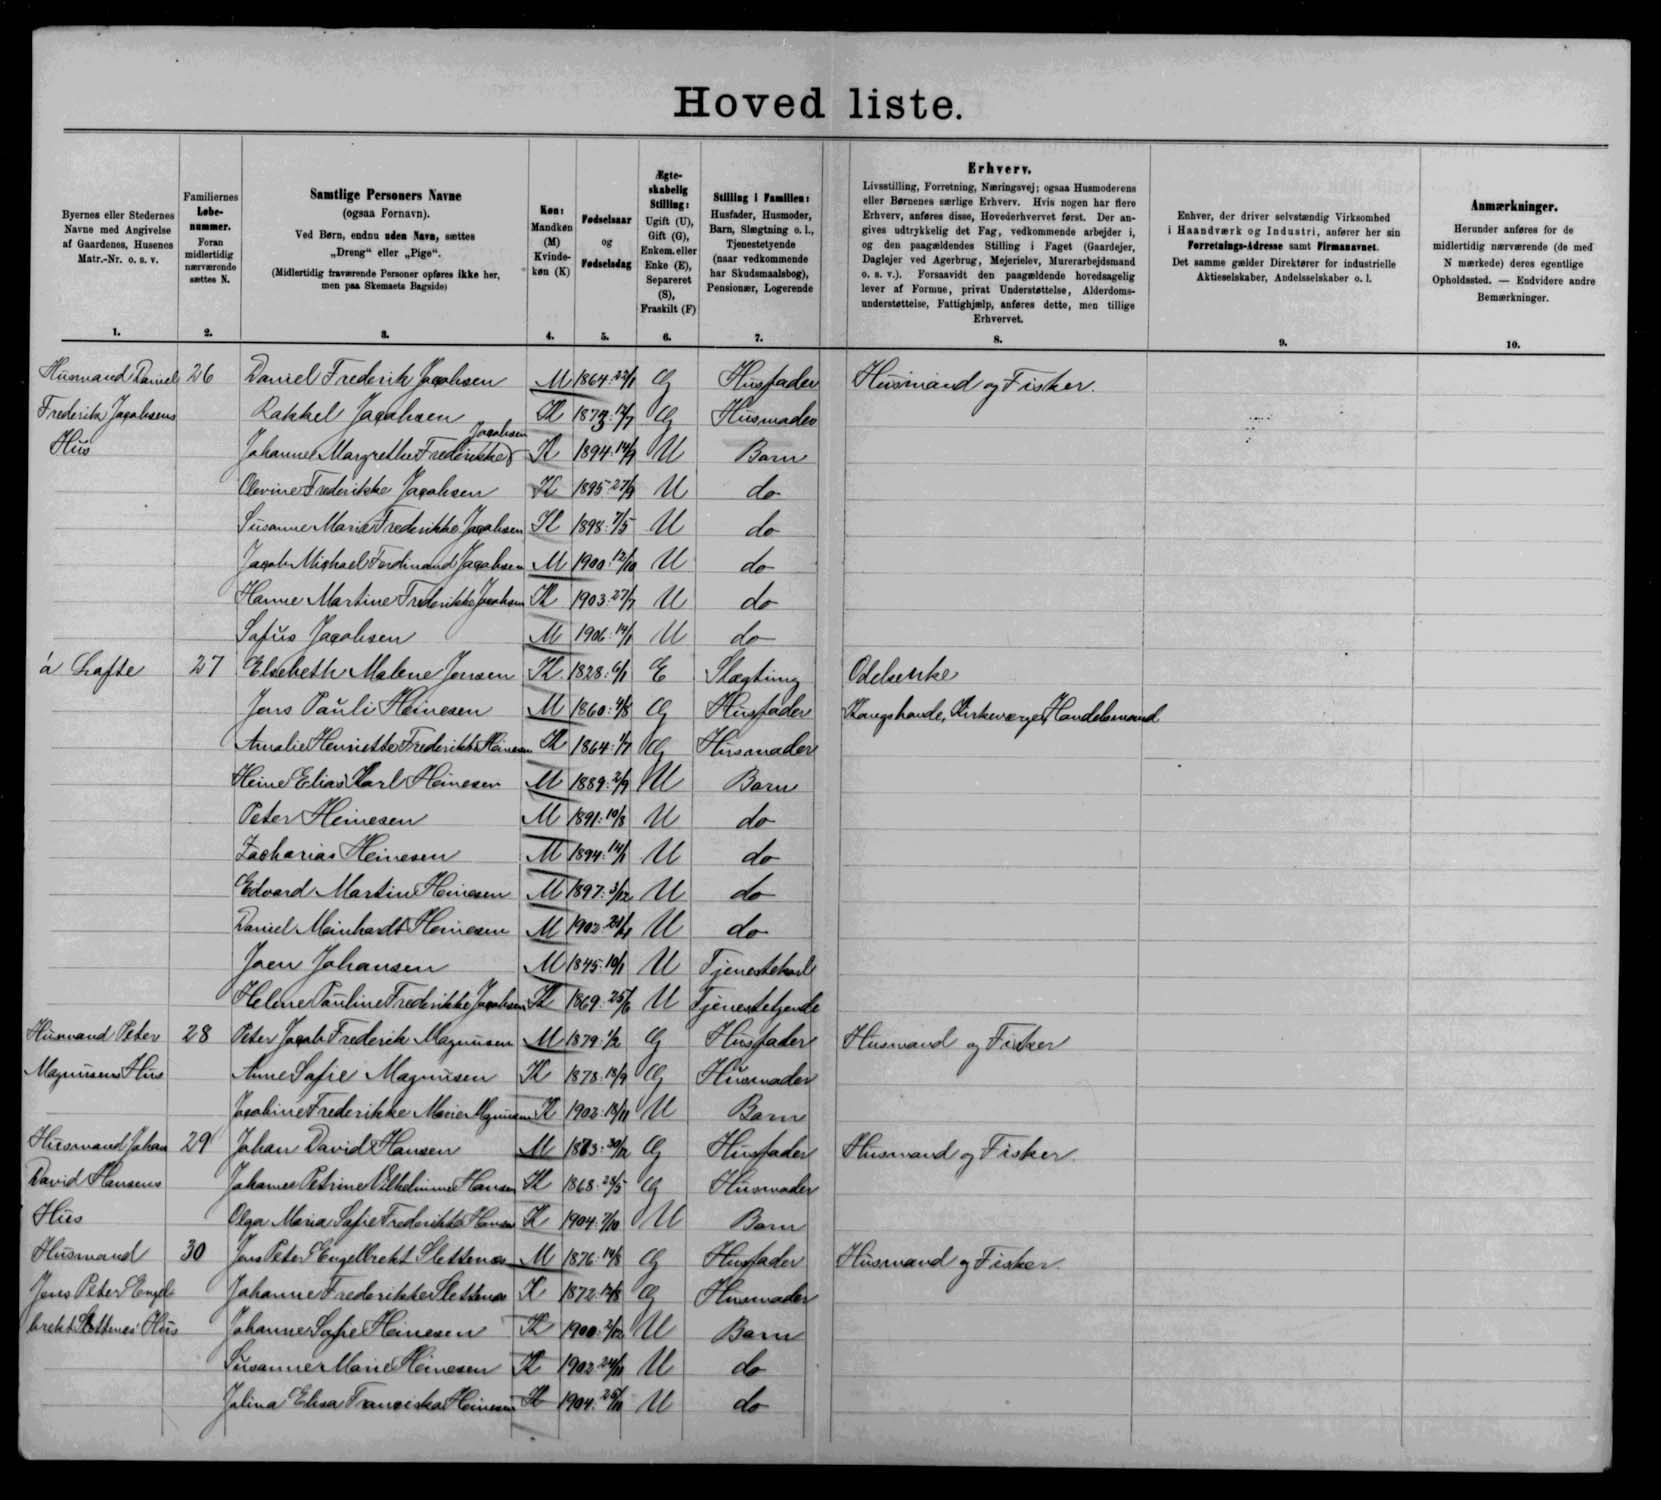 Hoved liste.
Byernes eller Stedernes Navne med Angivelse af Gaardenes, Husenes Matr.-Nr. o. s. v.
Familiernes Løbenummer. Foran midlertidig nærværende sættes N.
Samtlige Personers Navne
(ogsaa Fornavn).
Ved Børn, endnu uden Navn, sættes „Dreng“ eller „Pige“.
(Midlertidig fraværende Personer opføres ikke her, men paa Skemaets Bagside)
Køn: Mandkøn (M) Kvindekøn (K)
Fødselsaar og Fødselsdag
Ægteskabelig Stilling: Ugift (U), Gift (G), Enkem. eller Enke (E), Separeret (S), Fraskilt (F)
Stilling i Familien: Husfader, Husmoder, Barn, Slægtning o. l., Tjenestetyende (naar vedkommende har Skudsmaalsbog), Pensionær, Logerende
Erhverv.
Livsstilling, Forretning, Næringsvej; ogsaa Husmoderens eller Børnenes særlige Erhverv. Hvis nogen har flere Erhverv, anføres disse, Hovederhvervet først. Der angives udtrykkelig det Fag, vedkommende arbejder i, og den paagældendes Stilling i Faget (Gaardejer, Daglejer ved Agerbrug, Mejerielev, Murerarbejdsmand o. s. v.). Forsaavidt den paagældende hovedsagelig lever af Formue, privat Understøttelse, Alderdomsunderstøttelse, Fattighjælp, anføres dette, men tillige Erhvervet.
Enhver, der driver selvstændig Virksomhed i Haandværk og Industri, anfører her sin Forretnings-Adresse samt Firmanavnet. Det samme gælder Direktører for industrielle Aktieselskaber, Andelsselskaber o. l.
Anmærkninger.
Herunder anføres for de midlertidig nærværende (de med N mærkede) deres egentlige Opholdssted. — Endvidere andre Bemærkninger.
1. 2. 3. 4. 5. 6. 7. 8. 9. 10.
Husmand Daniel 26 Daniel Frederik Jacobsen M 1864: 22/1 G Husfader Husmand og Fisker.
Frederik Jacobsens Rakkel Jacobsen K 1873: /7 G Husmoder
Hus Johanne Margrethe Frederikke Jacobsen K 1894: 14/9 U Barn
Olevine Frederikke Jacobsen K 1895: 27/9 U do
Susanne Marie Frederikke Jacobsen K 1898: 7/5 U do
Jacob Michael Ferdinand Jacobsen M 1900: 12/10 U do
Hanne Martine Frederikke Jacobsen K 1903: 27/7 U do
Sofus Jacobsen M 1906: 14/1 U do
á Lofte 27 Elsebeth Malene Jensen K 1828: 6/1 E Slægtning Odelsenke
Jens Pauli Heinesen M 1860: 4/8 G Husfader Kongsbonde, Kirkeværge, Handelsmand
Amalie Henriette Frederikke Heinesen K 1864: 1/7 G Husmoder
Heine Elias Karl Heinesen M 1889: 2/9 U Barn
Peter Heinesen M 1891: 10/8 U do
Zacharias Heinesen M 1894: 14/1 U do
Edvard Martin Heinesen M 1897: 3/12 U do
Daniel Meinhardt Heinesen M 1902: U do
Joen Johansen M 1845: 10/1 U Tjenestekarl
Helene Pauline Frederikke Jacobsen K 1869: 25/6 U Tjenestetyende
Husmand Peter 28 Peter Jacob Frederik Magnusen M 1879: 1/2 G Husfader Husmand og Fisker
Magnusens Hus Anne Sofie Magnusen K 1878: 18/9 G Husmoder
Jacobine Frederikke Marie Magnusen K 1902: 18/11 U Barn
Husmand Johan 29 Johan David Hansen M 1863: 30/12 G Husfader Husmand og Fisker.
David Hansens Johanne Petrine Vilhelmine Hansen K 1868: 28/5 G Husmoder
Hus Olga Maria Sofie Frederikke Hansen K 1904: 7/10 U Barn
Husmand 30 Jens Peter Engelbrekt Slettenes M 1876: 14/8 G Husfader Husmand og Fisker.
Jens Peter Engel- Johanne Frederikke Slettenes K 1872: 14/8 G Husmoder
brekt Slettenes' Hus Johanne Sofie Heinesen K 1900: 2/12 U Barn
Susanne Marie Heinesen K 1902: 24/11 U do
Jolina Elisa Franciska Heinesen K 1904: 25/11 U do